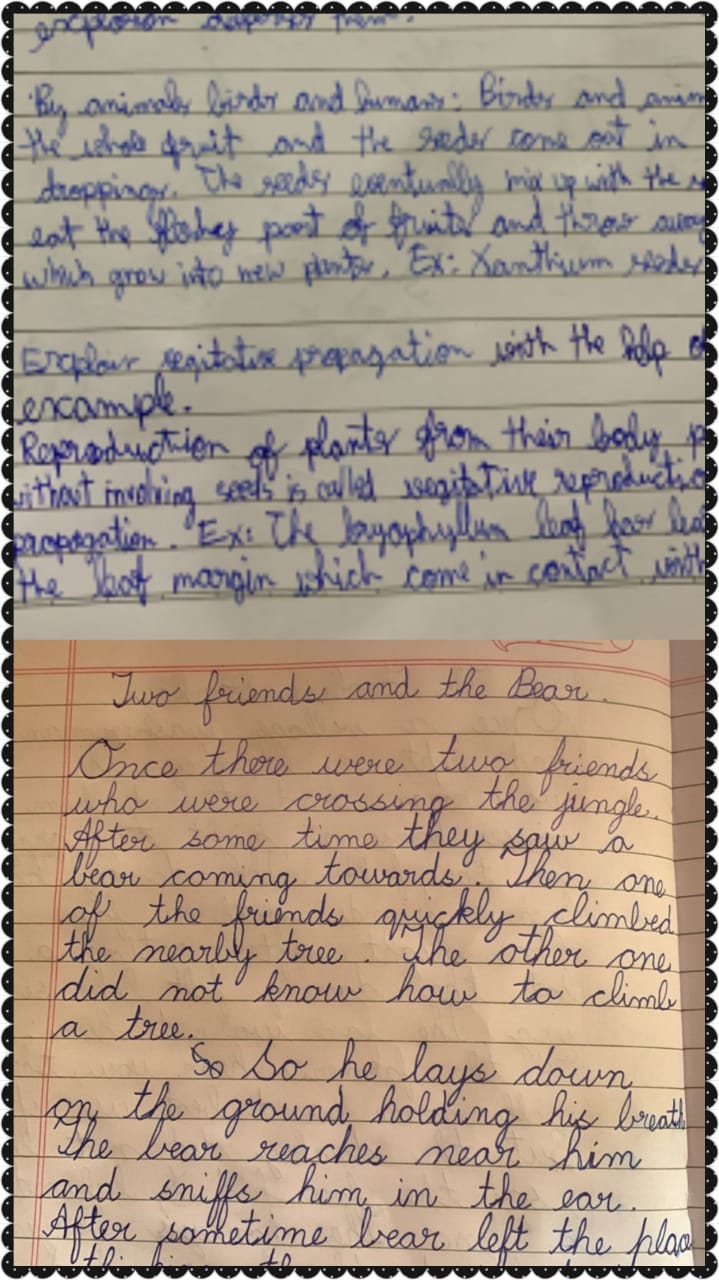 explosion disperses them.
By animals birds and humans: Birds and anim
the whole fruit and the seeds come out in
droppings. The seeds eventually mix up with the s
eat the fleshey part of fruits and throw away
which grow into new plants. Ex: Xanthium seeds
Explain vegitative propagation with the help of
example.
Reproduction of plants from their body p
without involving seeds is called vegitative reproductio
propagation. Ex: The bryophyllum leaf bear lea
the leaf margin which come in contact with
Two friends and the Bear.
Once there were two friends
who were crossing the jungle.
After some time they saw a
bear coming towards. Then one
of the friends quickly climbed
the nearby tree. The other one
did not know how to climb
a tree.
So So he lays down
on the ground holding his breath
The bear reaches near him
and sniffs him in the ear.
After sometime bear left the place